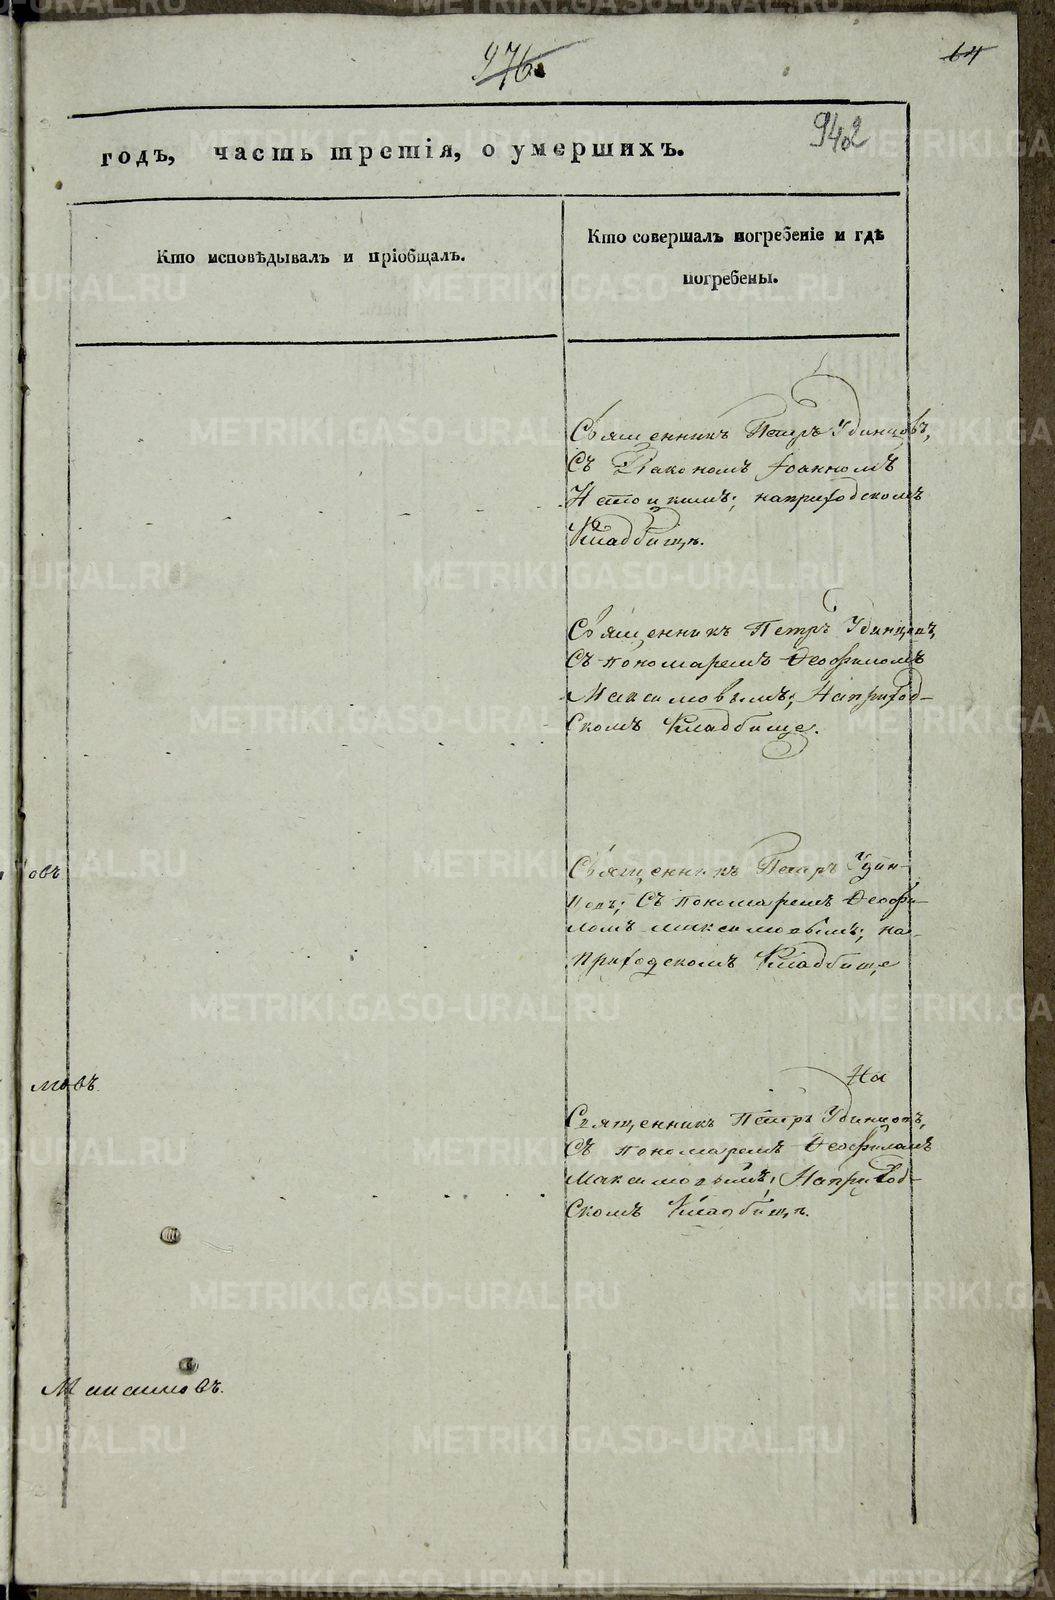 976
64
942
годъ, часть третія, о умершихъ.
Кто исповѣдывалъ и пріобщалъ.
Кто совершалъ погребеніе и гдѣ
погребены.
Священникъ Петръ Удинцовъ,
Съ Діакономъ Іоанномъ
наприходскомъ
Кладбищѣ.
Священникъ Петръ Удинцовъ,
Съ пономаремъ Ѳеофиломъ
Максимовымъ; Наприход-
Скомъ Кладбище.
овъ
Священникъ Петръ Удин-
цовъ; Съ пономаремъ Ѳеофи-
ломъ Максимовымъ; на-
приходскомъ Кладбище
мовъ
На
Священникъ Петръ Удинцовъ,
Съ пономаремъ Ѳеофиломъ
Максимовымъ; Наприход-
Скомъ Кладбищѣ.
Максимовъ.
METRIKI.GASO-URAL.RU